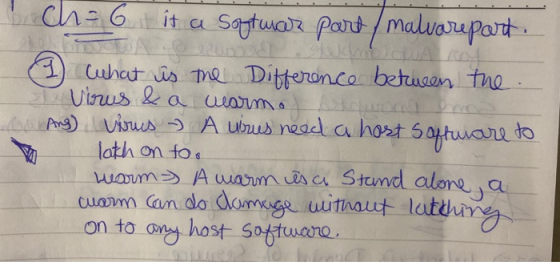 Ch = 6 it a Software part / malvare part.
① what is the Difference between the
Virus & a warm.
Ans) Virus → A virus need a host software to
lath on to.
warm ⇒ A warm is a Stand alone, a
warm can do damage without latching
on to any host software.